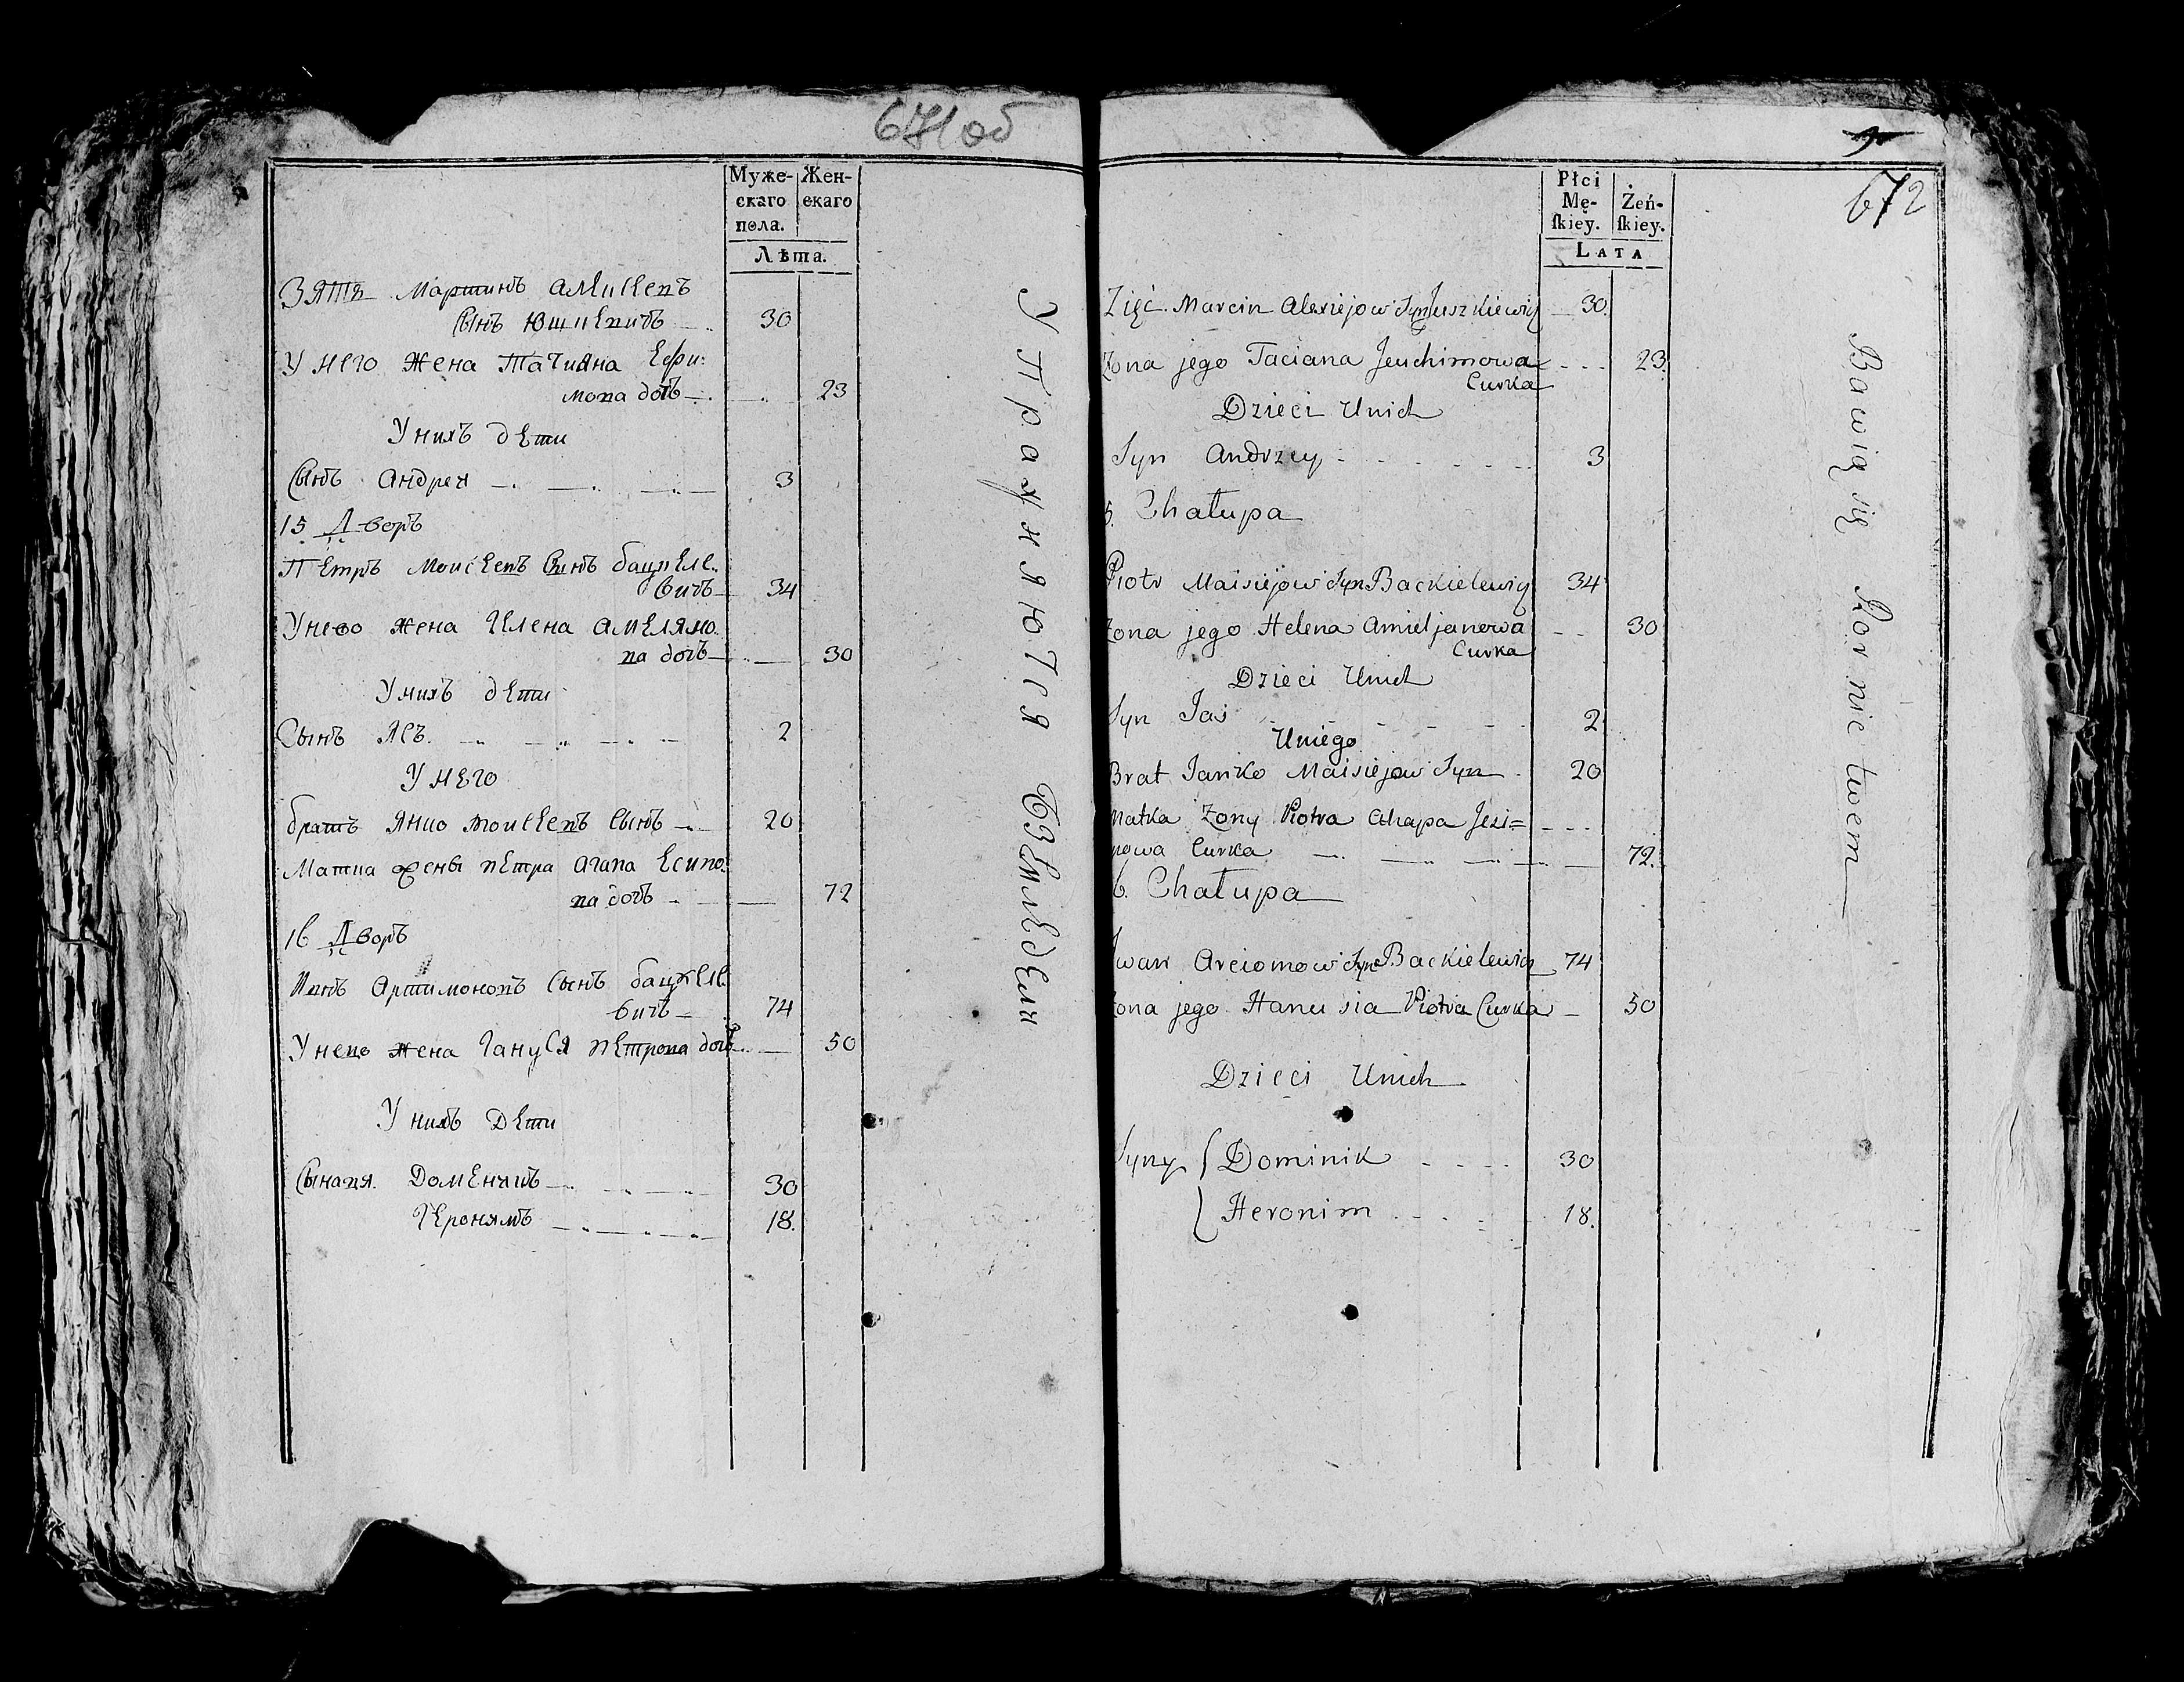 671 об
Муже-
скаго
пола.
Жен-
скаго
Лѣта.
Зятя Мартинъ Аликсеевъ
Сынъ Юшкевичъ 30
У него жена Татияна Ефи-
мова дочъ 23
У нихъ дети
Сынъ Андрея 3
15 Дворъ
Петръ Моисеевъ Сынъ бацкеле-
вичъ 34
У нево жена Гелена Амеляно-
ва дочъ 30
У нихъ дети
Сынъ Ясъ 2
У него
братъ Янко Моисеевъ Сынъ 20
Матка жены петра Агапа Есипо-
ва дочъ 72
16 Дворъ
Иванъ Артимоновъ Сынъ бацкеле-
вичъ 74
У нево жена Гануся петрова дочъ 50
У нихъ Дети
Сыновя. Доменикъ 30
Геронямъ 18.
Упражняются
672
Płci
Mę-
ſkiey.
Żeń-
ſkiey.
LATA
Zięć Marcin Alexiejow Syn Juszkiewicz 30.
Zona jego Taciana Jeuchimowa 23.
Curka
Dzieci Unich
Syn Andrzey 3
5. Chałupa
Piotr Maisiejow Syn Backielewicz 34
Zona jego Helena Amieljanowa 30
Curka
Dzieci Unich
Syn Jaś 2
Uniego
Brat Janko Maisiejow Syn 20
Matka Zony Piotra Ahapa Jesi=
powa Curka 72.
6. Chałupa
Iwan Arciomow Syn Backielewicz 74
Zona jego Hanusia Piotra Curka 50
Dzieci Unich
Syny Dominik 30
Heronim 18.
Bawią się Rolnictwem